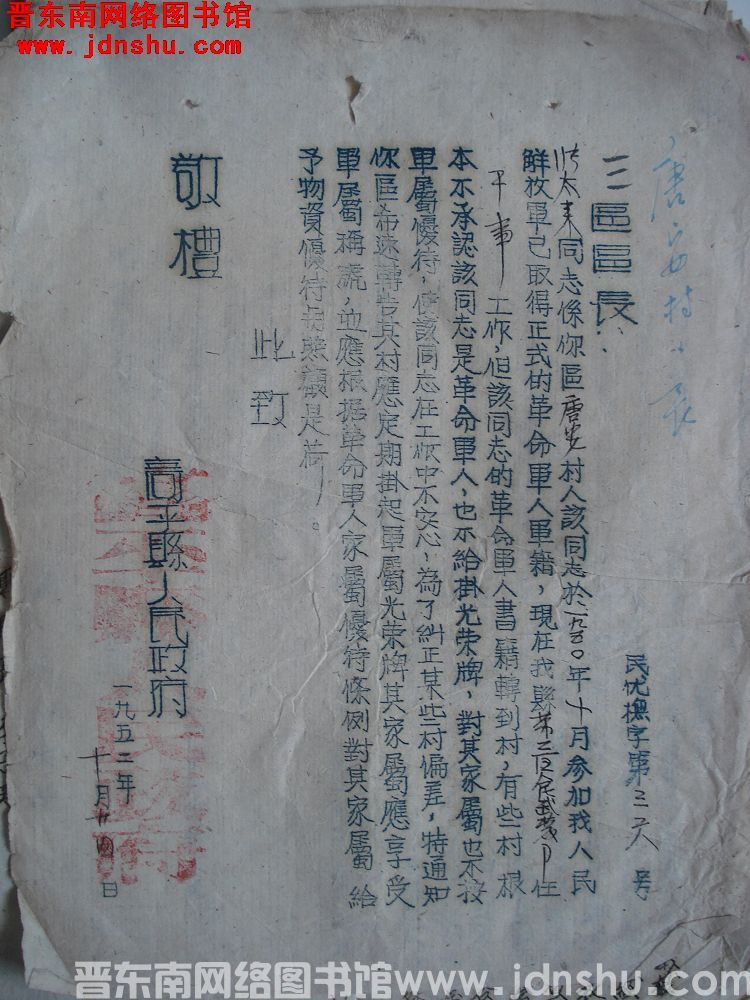 晋东南网络图书馆
www.jdnshu.com
唐安村
民优撫字第三 号
三區區長：
太来同志係你區唐安村人該同志於一九五〇年十月参加我人民
解放軍已取得正式的革命軍人軍籍，現在我縣第三区人民武装 任
干事工作，但該同志的革命軍人書籍轉到村，有些村根
本不承認該同志是革命軍人，也不給掛光荣牌，對其家屬也不按
軍屬優待，使該同志在工作中不安心，為了糾正某些村偏差，特通知
你區希速轉告其村應定期掛起軍屬光荣牌其家屬應享受
軍屬稱號，並應根据革命軍人家屬優待條例對其家屬給
予物資優待与照顧是荷。
此致
敬禮
高平縣人民政府
一九五二年
十月廿四日
晋东南网络图书馆www.jdnshu.com